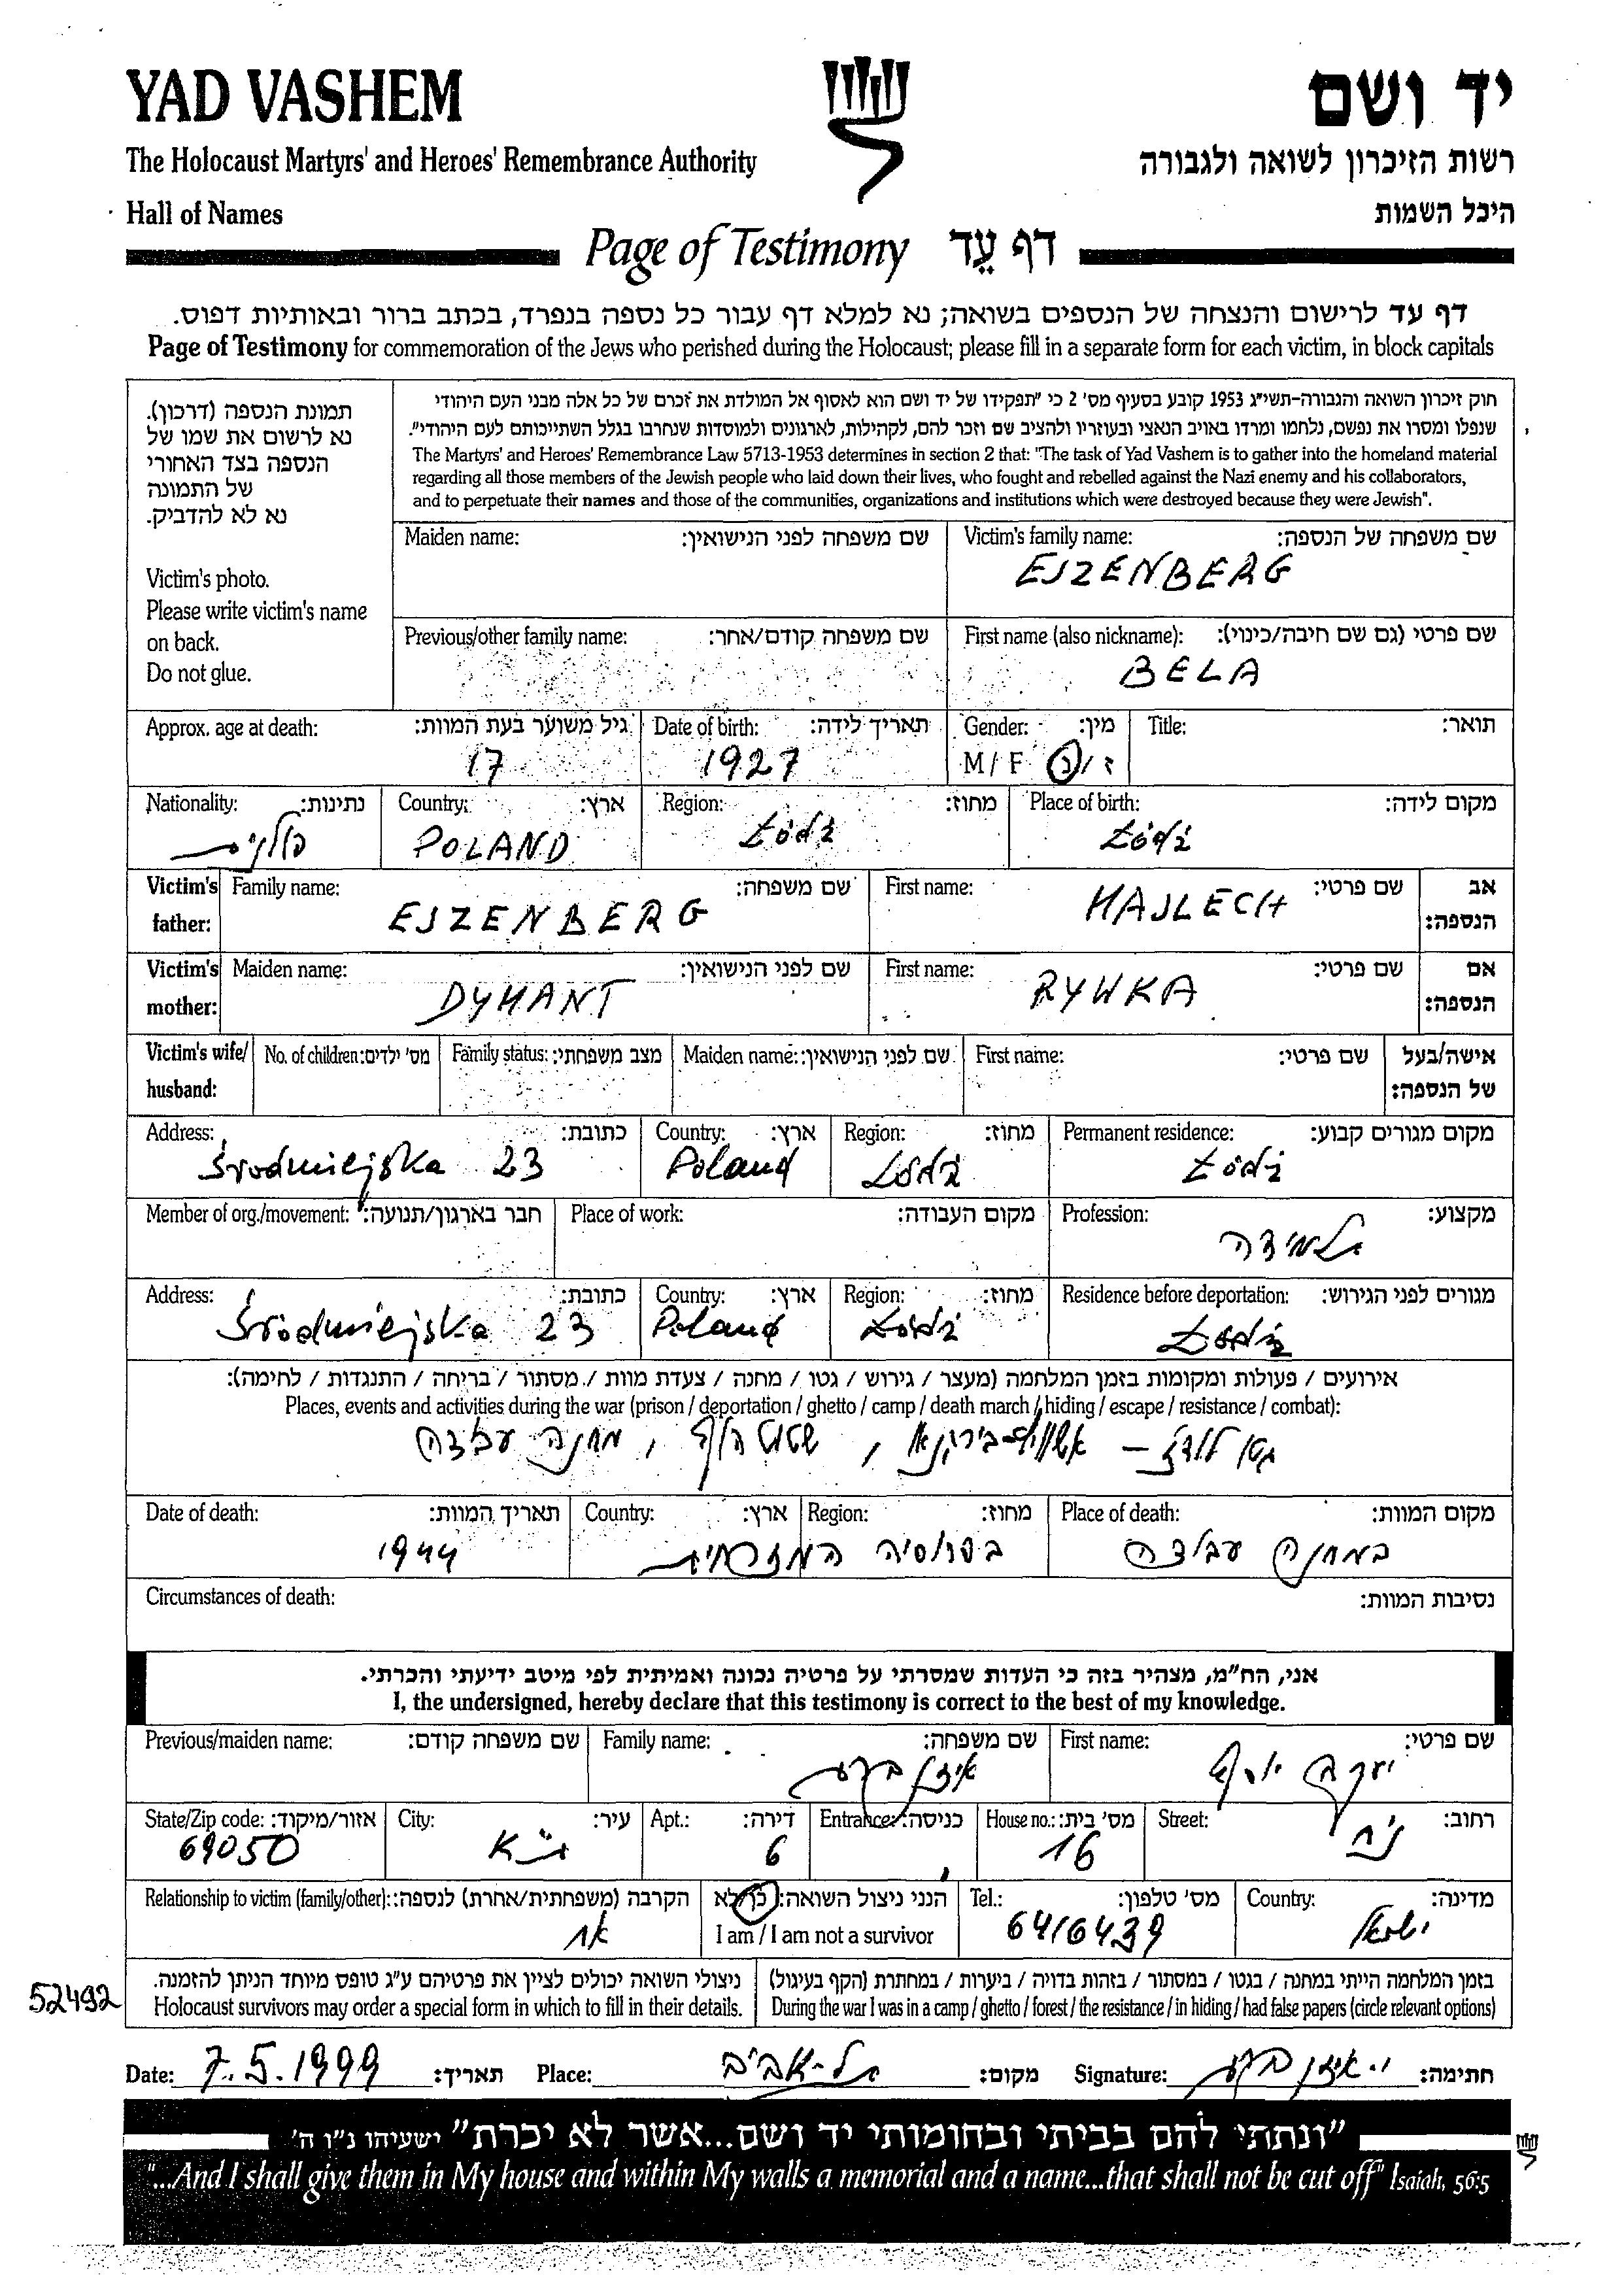 YAD VASHEM
יד ושם
The Holocaust Martyrs' and Heroes' Remembrance Authority
רשות הזיכרון לשואה ולגבורה
Hall of Names
היכל השמות
Page of Testimony דף עֵד
דף עד לרישום והנצחה של הנספים בשואה; נא למלא דף עבור כל נספה בנפרד, בכתב ברור ובאותיות דפוס.
Page of Testimony for commemoration of the Jews who perished during the Holocaust; please fill in a separate form for each victim, in block capitals
תמונת הנספה (דרכון).
נא לרשום את שמו של
הנספה בצד האחורי
של התמונה
נא לא להדביק.
Victim's photo.
Please write victim's name
on back.
Do not glue.
חוק זיכרון השואה והגבורה-תשי"ג 1953 קובע בסעיף מס' 2 כי "תפקידו של יד ושם הוא לאסוף אל המולדת את זכרם של כל אלה מבני העם היהודי
שנפלו ומסרו את נפשם, נלחמו ומרדו באויב הנאצי ובעוזריו ולהציב שם וזכר להם, לקהילות, לארגונים ולמוסדות שנחרבו בגלל השתייכותם לעם היהודי".
The Martyrs' and Heroes' Remembrance Law 5713-1953 determines in section 2 that: "The task of Yad Vashem is to gather into the homeland material
regarding all those members of the Jewish people who laid down their lives, who fought and rebelled against the Nazi enemy and his collaborators,
and to perpetuate their names and those of the communities, organizations and institutions which were destroyed because they were Jewish".
Maiden name: שם משפחה לפני הנישואין: Victim's family name: שם משפחה של הנספה:
EJZENBERG
Previous/other family name: שם משפחה קודם/אחר: First name (also nickname): שם פרטי (גם שם חיבה/כינוי):
BELA
Approx. age at death: גיל משוער בעת המוות: Date of birth: תאריך לידה: Gender: מין: Title: תואר:
17 1927 M / F ז / נ
Nationality: נתינות: Country: ארץ: Region: מחוז: Place of birth: מקום לידה:
פולנית POLAND Łódź Łódź
Victim's father: Family name: שם משפחה: First name: שם פרטי: אב הנספה:
EJZENBERG HAJLECH
Victim's mother: Maiden name: שם לפני הנישואין: First name: שם פרטי: אם הנספה:
DYMANT RYWKA
Victim's wife/ husband: No. of children: מס' ילדים: Family status: מצב משפחתי: Maiden name: שם לפני הנישואין: First name: שם פרטי: אישה/בעל של הנספה:
Address: כתובת: Country: ארץ: Region: מחוז: Permanent residence: מקום מגורים קבוע:
Śródmiejska 23 Poland Łódź Łódź
Member of org./movement: חבר בארגון/תנועה: Place of work: מקום העבודה: Profession: מקצוע:
תלמידה
Address: כתובת: Country: ארץ: Region: מחוז: Residence before deportation: מגורים לפני הגירוש:
Śródmiejska 23 Poland Łódź Łódź
אירועים / פעולות ומקומות בזמן המלחמה (מעצר / גירוש / גטו / מחנה / צעדת מוות / מסתור / בריחה / התנגדות / לחימה):
Places, events and activities during the war (prison / deportation / ghetto / camp / death march / hiding / escape / resistance / combat):
גטו לודז – אשוויץ-בירקנאו , שטוטהוף , מחנה עבודה
Date of death: תאריך המוות: Country: ארץ: Region: מחוז: Place of death: מקום המוות:
1944 בפרוסיה המזרחית במחנה עבודה
Circumstances of death: נסיבות המוות:
אני, הח"מ, מצהיר בזה כי העדות שמסרתי על פרטיה נכונה ואמיתית לפי מיטב ידיעתי והכרתי.
I, the undersigned, hereby declare that this testimony is correct to the best of my knowledge.
Previous/maiden name: שם משפחה קודם: Family name: שם משפחה: First name: שם פרטי:
איזנברג יעקב יוסף
State/Zip code: אזור/מיקוד: City: עיר: Apt.: דירה: Entrance: כניסה: House no.: מס' בית: Street: רחוב:
69050 ת"א 6 16
Relationship to victim (family/other): הקרבה (משפחתית/אחרת) לנספה: הנני ניצול השואה: כן/לא Tel.: מס' טלפון: Country: מדינה:
אח I am / I am not a survivor 6416439 ישראל
ניצולי השואה יכולים לציין את פרטיהם ע"ג טופס מיוחד הניתן להזמנה. בזמן המלחמה הייתי במחנה / בגטו / במסתור / בזהות בדויה / ביערות / במחתרת (הקף בעיגול)
52492 Holocaust survivors may order a special form in which to fill in their details. During the war I was in a camp / ghetto / forest / the resistance / in hiding / had false papers (circle relevant options)
Date: 7.5.1999 תאריך: Place: תל-אביב מקום: Signature: י. איזנברג חתימה:
"ונתתי להם בביתי ובחומותי יד ושם...אשר לא יכרת" ישעיהו נ"ו ה'
"...And I shall give them in My house and within My walls a memorial and a name...that shall not be cut off" Isaiah, 56:5